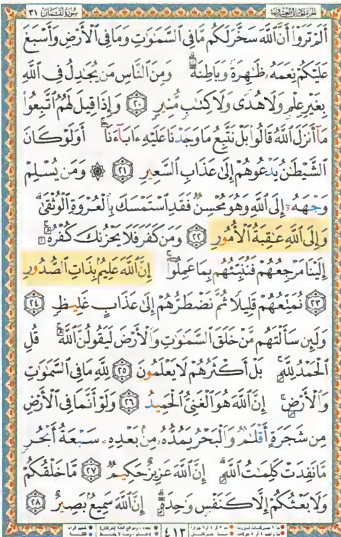 سورة لقمان ٣١
أَلَمْ تَرَوْا۟ أَنَّ ٱللَّهَ سَخَّرَ لَكُم مَّا فِى ٱلسَّمَٰوَٰتِ وَمَا فِى ٱلْأَرْضِ وَأَسْبَغَ
عَلَيْكُمْ نِعَمَهُۥ ظَٰهِرَةً وَبَاطِنَةً ۗ وَمِنَ ٱلنَّاسِ مَن يُجَٰدِلُ فِى ٱللَّهِ
بِغَيْرِ عِلْمٍ وَلَا هُدًى وَلَا كِتَٰبٍ مُّنِيرٍ ٢٠ وَإِذَا قِيلَ لَهُمُ ٱتَّبِعُوا۟
مَآ أَنزَلَ ٱللَّهُ قَالُوا۟ بَلْ نَتَّبِعُ مَا وَجَدْنَا عَلَيْهِ ءَابَآءَنَآ ۚ أَوَلَوْ كَانَ
ٱلشَّيْطَٰنُ يَدْعُوهُمْ إِلَىٰ عَذَابِ ٱلسَّعِيرِ ٢١ ۞ وَمَن يُسْلِمْ
وَجْهَهُۥٓ إِلَى ٱللَّهِ وَهُوَ مُحْسِنٌ فَقَدِ ٱسْتَمْسَكَ بِٱلْعُرْوَةِ ٱلْوُثْقَىٰ ۗ
وَإِلَى ٱللَّهِ عَٰقِبَةُ ٱلْأُمُورِ ٢٢ وَمَن كَفَرَ فَلَا يَحْزُنكَ كُفْرُهُۥٓ ۚ
إِلَيْنَا مَرْجِعُهُمْ فَنُنَبِّئُهُم بِمَا عَمِلُوٓا۟ ۚ إِنَّ ٱللَّهَ عَلِيمٌۢ بِذَاتِ ٱلصُّدُورِ
٢٣ نُمَتِّعُهُمْ قَلِيلًا ثُمَّ نَضْطَرُّهُمْ إِلَىٰ عَذَابٍ غَلِيظٍ ٢٤
وَلَئِن سَأَلْتَهُم مَّنْ خَلَقَ ٱلسَّمَٰوَٰتِ وَٱلْأَرْضَ لَيَقُولُنَّ ٱللَّهُ ۚ قُلِ
ٱلْحَمْدُ لِلَّهِ ۚ بَلْ أَكْثَرُهُمْ لَا يَعْلَمُونَ ٢٥ لِلَّهِ مَا فِى ٱلسَّمَٰوَٰتِ
وَٱلْأَرْضِ ۚ إِنَّ ٱللَّهَ هُوَ ٱلْغَنِىُّ ٱلْحَمِيدُ ٢٦ وَلَوْ أَنَّمَا فِى ٱلْأَرْضِ
مِن شَجَرَةٍ أَقْلَٰمٌ وَٱلْبَحْرُ يَمُدُّهُۥ مِنۢ بَعْدِهِۦ سَبْعَةُ أَبْحُرٍ
مَّا نَفِدَتْ كَلِمَٰتُ ٱللَّهِ ۗ إِنَّ ٱللَّهَ عَزِيزٌ حَكِيمٌ ٢٧ مَّا خَلْقُكُمْ
وَلَا بَعْثُكُمْ إِلَّا كَنَفْسٍ وَٰحِدَةٍ ۗ إِنَّ ٱللَّهَ سَمِيعٌۢ بَصِيرٌ ٢٨
٤١٣